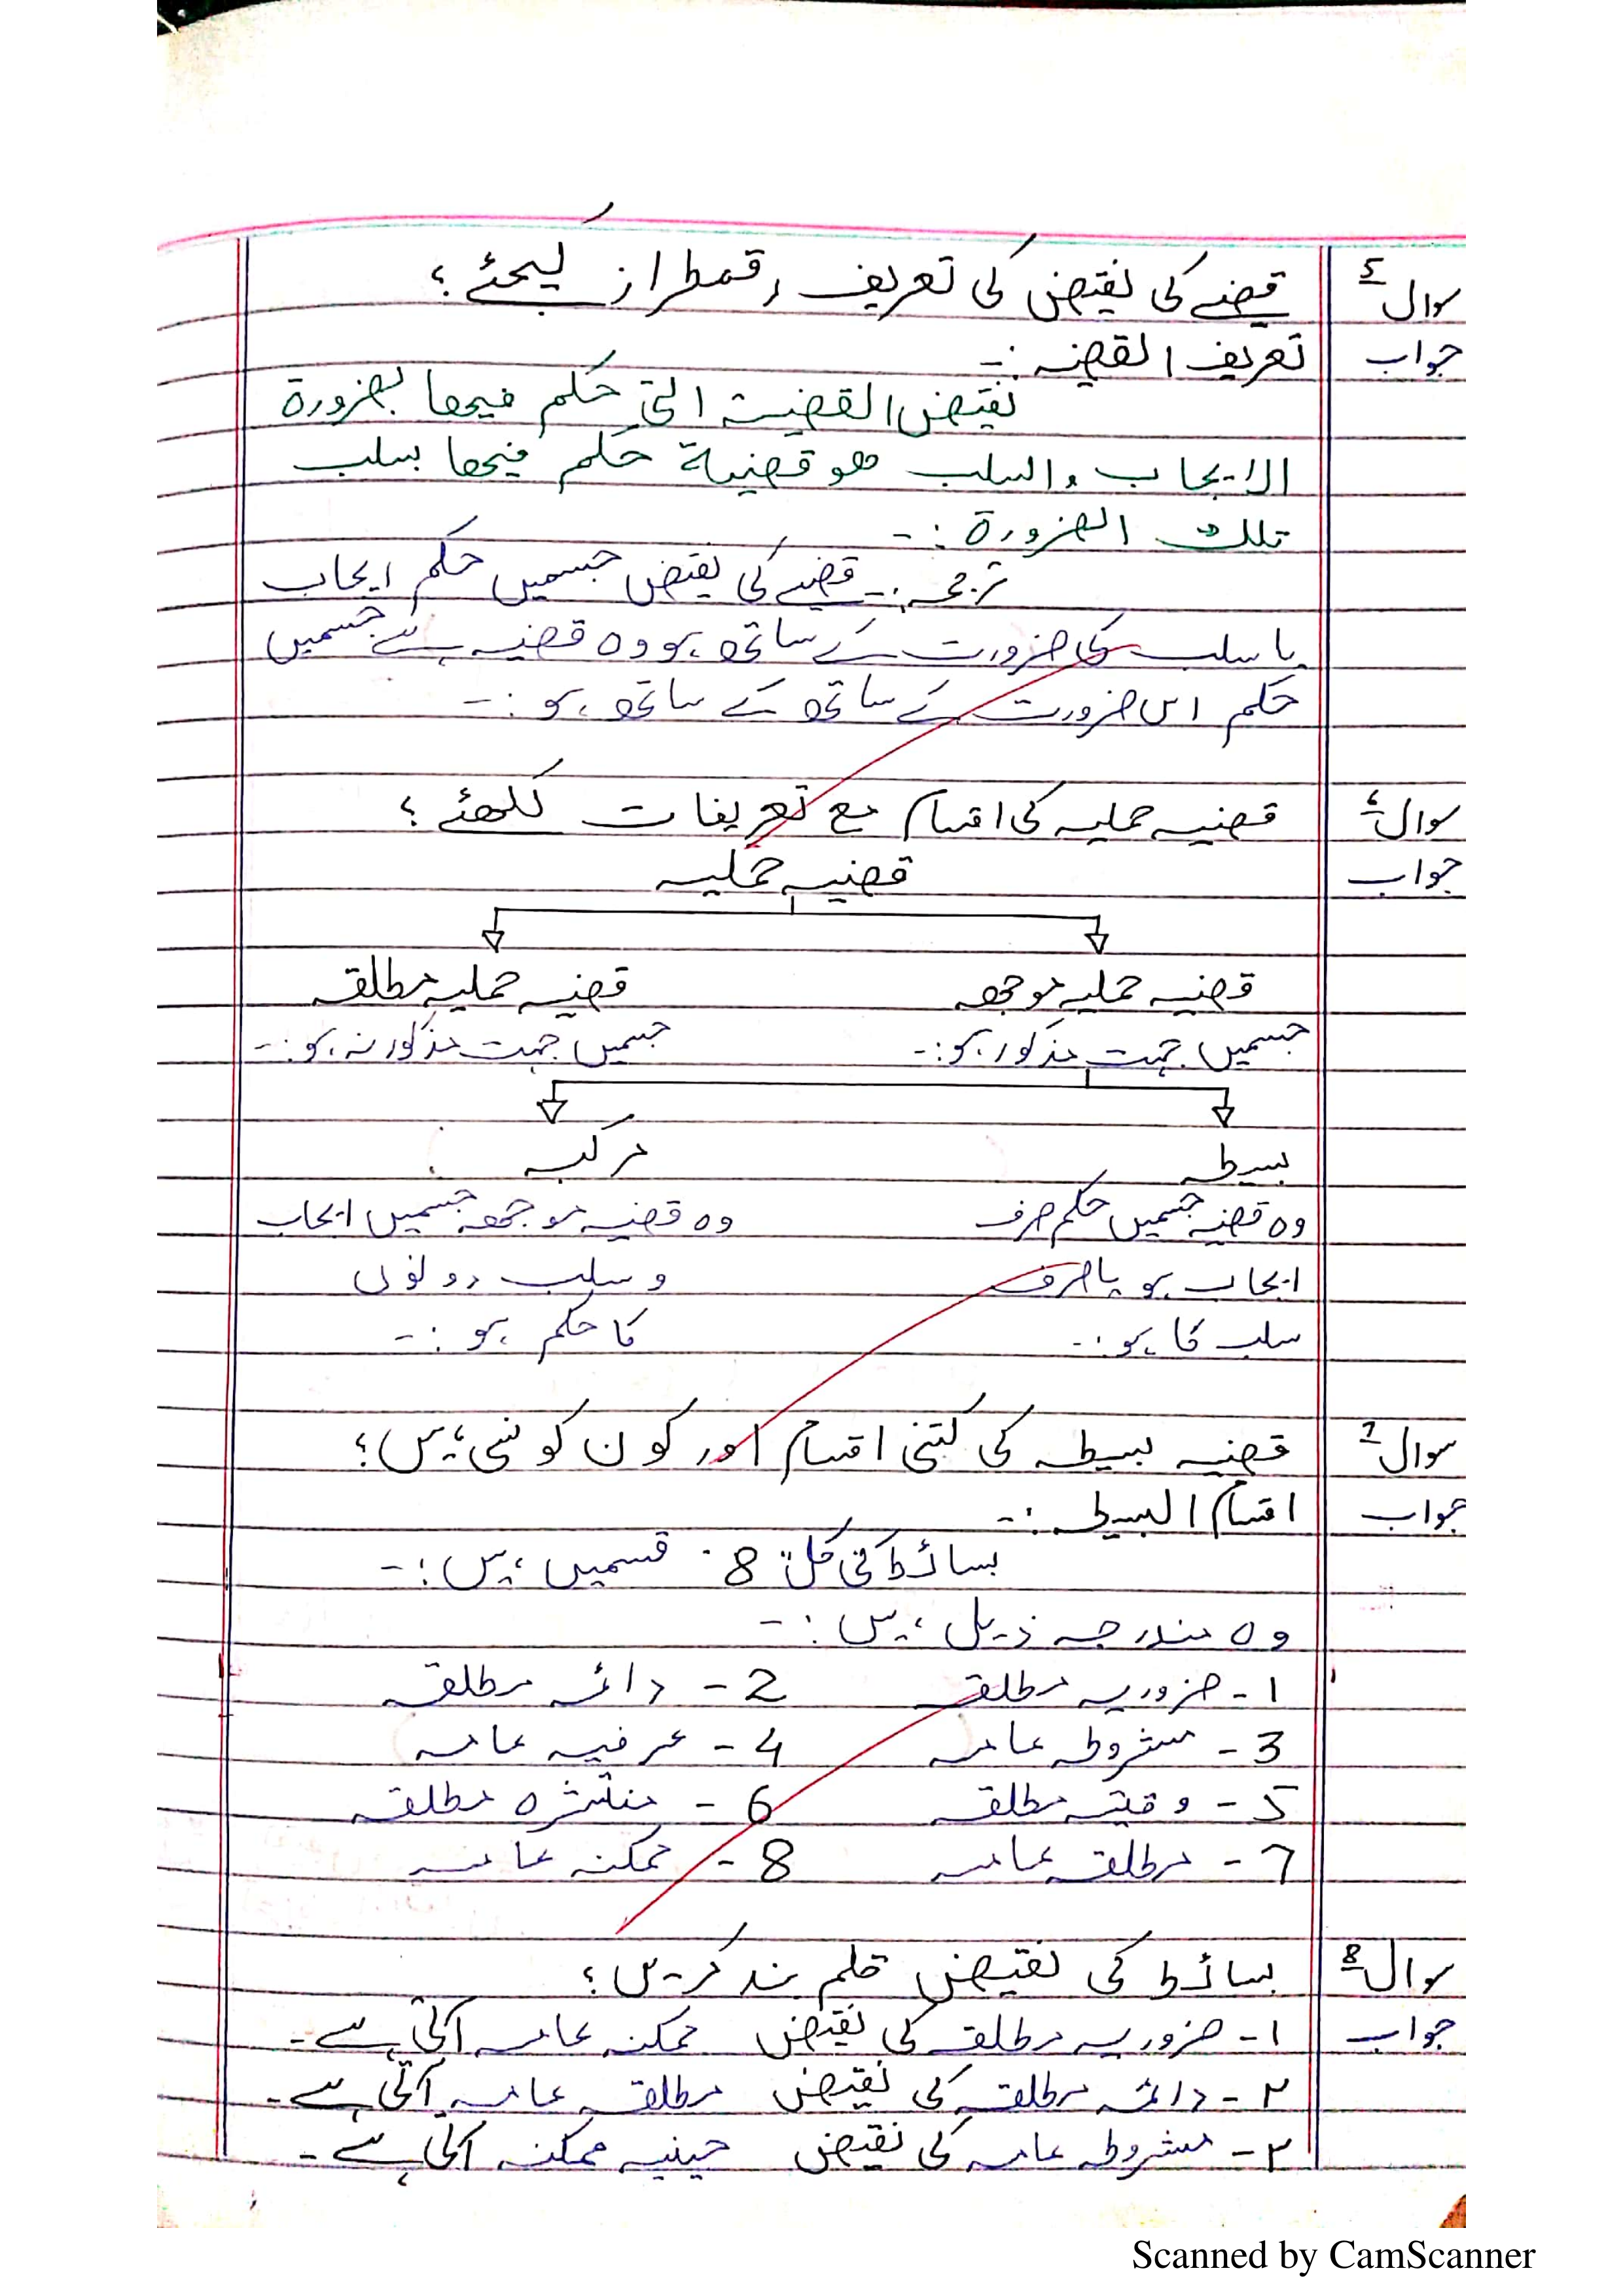 سوال ۵ قضیے کی نقیض کی تعریف رقمطراز کیجئے؟
جواب تعریف القضیہ :-
نقیض القضیۃ التی حکم فیھا بضرورۃ
الایجاب والسلب ھو قضیۃ حکم فیھا بسلب
تلک الضرورۃ :-
ترجمہ :- قضیے کی نقیض جسمیں حکم ایجاب
یا سلب کی ضرورت کے ساتھ ہو وہ قضیہ ہے جسمیں
حکم اس ضرورت کے ساتھ کے ساتھ ہو :-
سوال ۶ قضیہ حملیہ کی اقسام مع تعریفات لکھئے؟
جواب قضیہ حملیہ
قضیہ حملیہ موجھہ قضیہ حملیہ مطلقہ
جسمیں جہت مذکور ہو :- جسمیں جہت مذکور نہ ہو :-
بسیطہ مرکبہ
وہ قضیہ جسمیں حکم صرف وہ قضیہ موجھہ جسمیں ایجاب
ایجاب ہو یا صرف و سلب دونوں
سلب کا ہو :- کا حکم ہو :-
سوال 7 قضیہ بسیطہ کی کتنی اقسام اور کون کونسی ہیں؟
جواب اقسام البسیطہ :-
بسائط کی کل 8 قسمیں ہیں :-
وہ مندرجہ ذیل ہیں :-
1- ضروریہ مطلقہ 2- دائمہ مطلقہ
3- مشروطہ عامہ 4- عرفیہ عامہ
5- وقتیہ مطلقہ 6- منتشرہ مطلقہ
7- مطلقہ عامہ 8- ممکنہ عامہ
سوال 8 بسائط کی نقیض قلم بند کریں؟
جواب ۱- ضروریہ مطلقہ کی نقیض ممکنہ عامہ آتی ہے -
۲- دائمہ مطلقہ کی نقیض مطلقہ عامہ آتی ہے -
۳- مشروطہ عامہ کی نقیض حینیہ ممکنہ آتی ہے -
Scanned by CamScanner